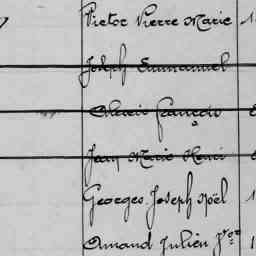 Victor Pierre Marie 1
Joseph Emmanuel
Alexis François
Jean Marie Henri
Georges Joseph Noël 1
Amand Julien